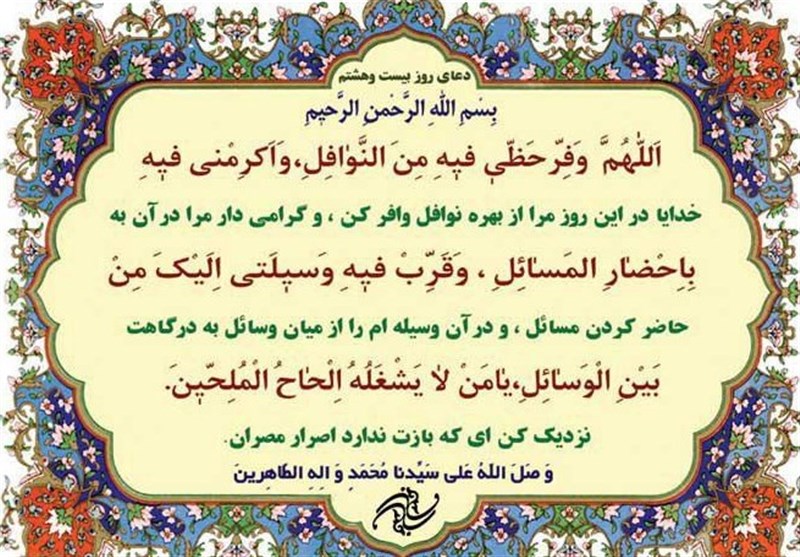 دعای روز بیست وهشتم
بِسْمِ اللهِ الرَّحْمنِ الرَّحیمِ
اَللّٰهُمَّ وَفِّر حَظّي فیهِ مِنَ النَّوٰافِلِ،وَاَکرِمْنی فیهِ
خدایا در این روز مرا از بهره نوافل وافر کن ، و گرامی دار مرا درآن به
بِاِحْضٰارِ المَسٰائِلِ ، وَقَرِّبْ فیهِ وَسیلَتی اِلَیْکَ مِنْ
حاضر کردن مسائل ، و درآن وسیله ام را از میان وسائل به درگاهت
بَیْنِ الْوَسٰائِلِ،یٰامَنْ لٰا یَشْغَلُهُ اِلْحٰاحُ الْمُلِحّینَ.
نزدیک کن ای که بازت ندارد اصرار مصران.
وَ صَلَ اللهُ عَلی سَیِّدنا مُحَمَدٍ وَ الِهِ الطّاهِرینَ